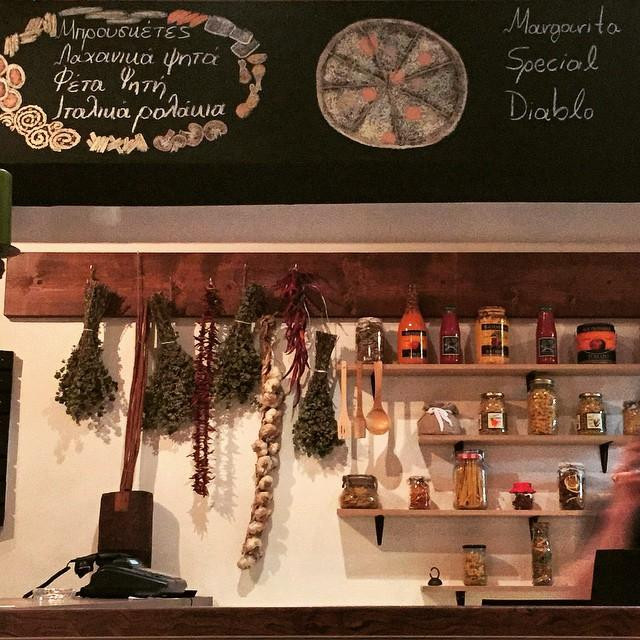 Μπρουσκέτες
Λαχανικά ψητά
Φέτα Ψητή
Ιταλικά ρολάκια
Margarita
Special
Diablo